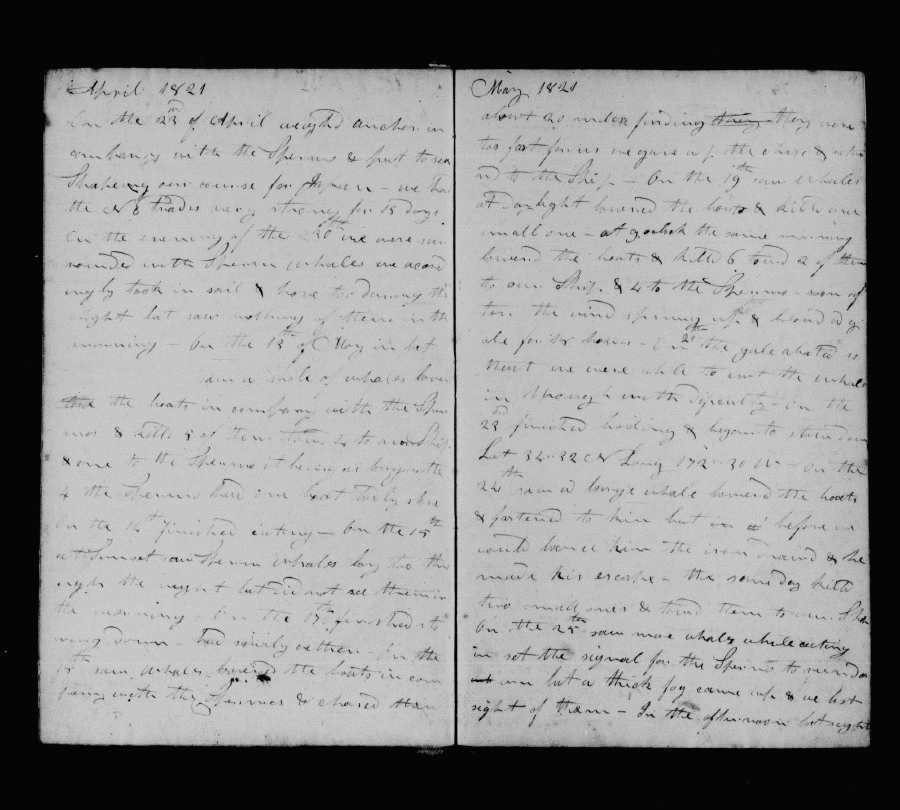 April 1821
On the 23rd of April weighed anchor in
company with the Spermo & put to sea
Shapeing our course for Japan - we had
the N E trades very strong for 15 days
On the evening of the we were sur
rounded with Sperm whales we acord
ingly took in sail & hove too during the
night but saw nothing of them in the
morning - On the 13th of May in Lat
saw a shole of whales lower
the boats in company with the Sper
mo & killd 5 of them took 4 to our Ship
& one to the Spermo it being as large as the
4 the Spermo had one boat badly stove
On the 14th finished cuting - On the 15th
at Sunset saw Sperm whales lay too thro
ugh the night but did not see them in
the morning - On the 17th finished sto
wing down - had rainy wether - On the
saw whales lowered the boats in com
pany with the Spermo & chased them
May 1821
about 20 miles finding they were
too fast for us we gave up the chase & retur
nd to the Ship - On the 19th saw whales
at Daylight lowered the boats & killd one
small one - at 9 oclock the same morning
lowered the boats & killd 6 towd 2 of them
to our Ship & 4 to the Spermo - soon af
ter the wind sprung up & blowed a g
ale for hours - On 20th the gale abated so
that we were able to cut the whales
in though with dificulty - On the
23rd finished boiling & began to stow down
Lat 32-32 N Long 172-30 W - On the
24th saw a large whale lowerd the boats
& fastened to him but in before we
could lance him the iron drawd & he
made his escape - the same day killd
two small ones & towd them to our Ship
On the 25th saw more whales while cutting
in set the signal for the Spermo to run do
wn but a thick fog came up & we lost
sight of them - In the afternoon lost sight